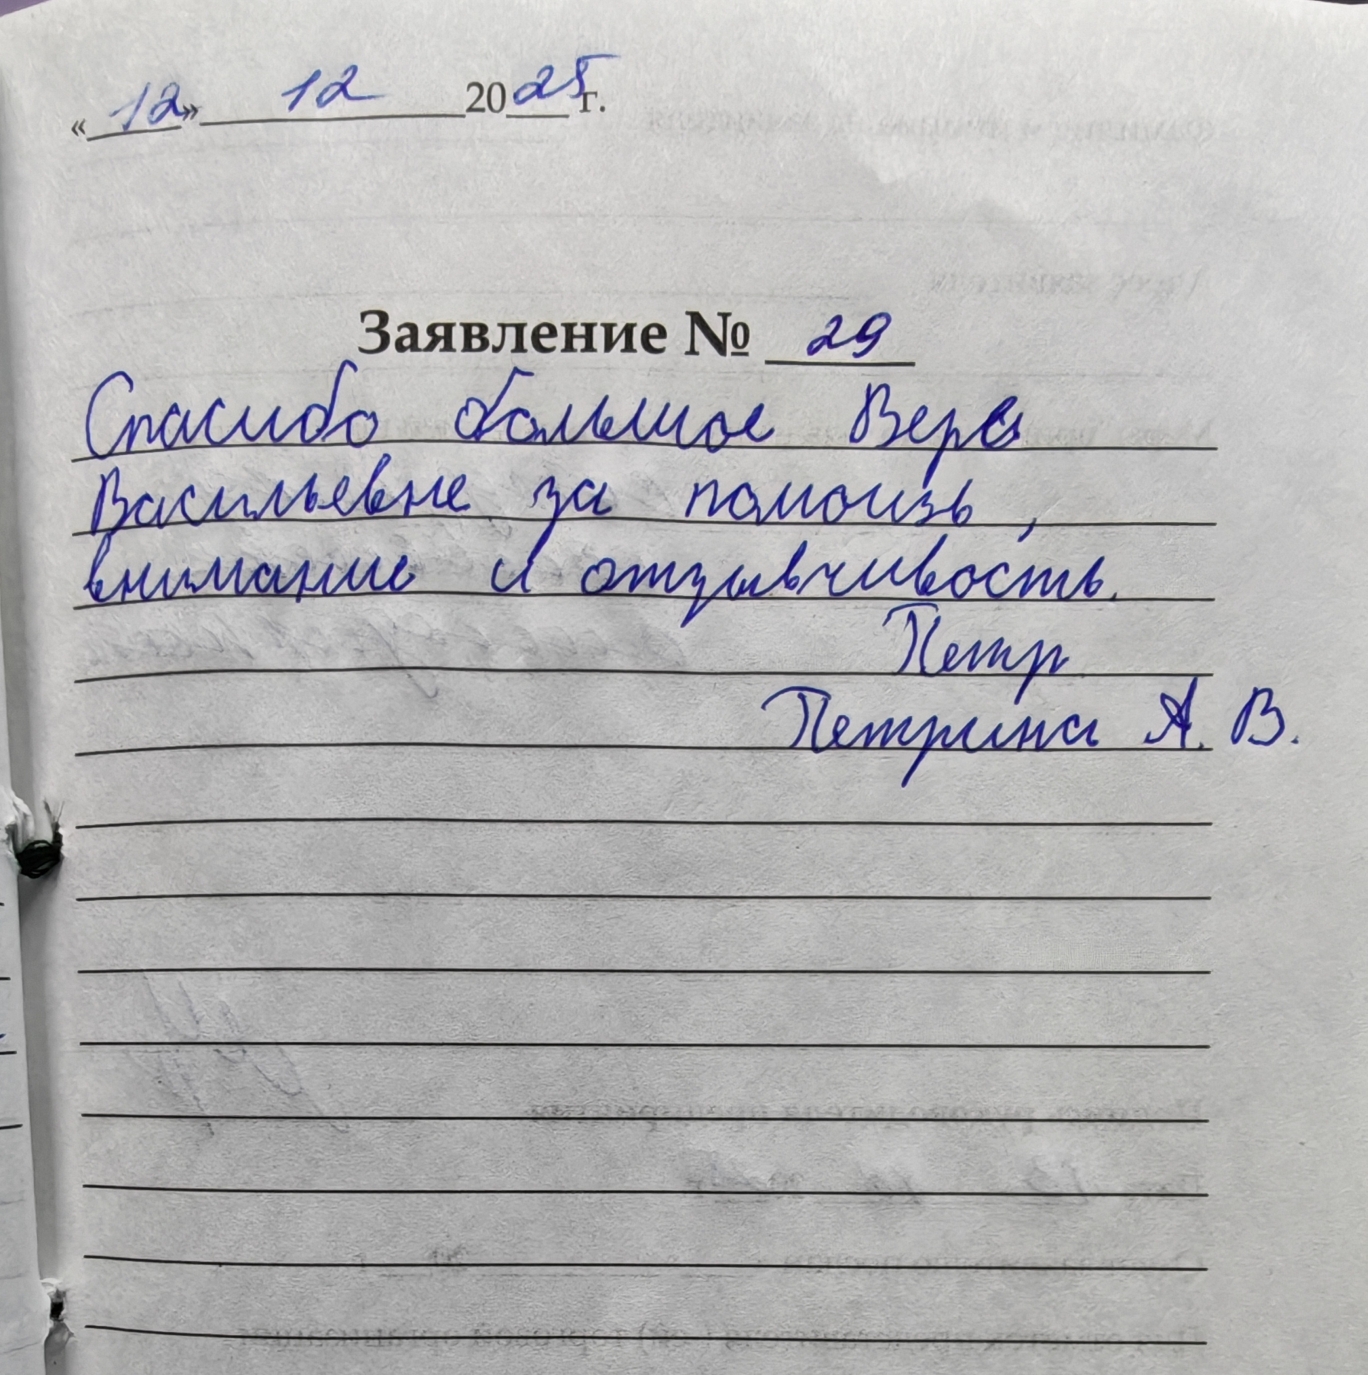 «12» 12 2025 г.
Заявление № 29
Спасибо большое Вере
Васильевне за помощь,
внимание и отзывчивость.
Петр
Петрина А. В.